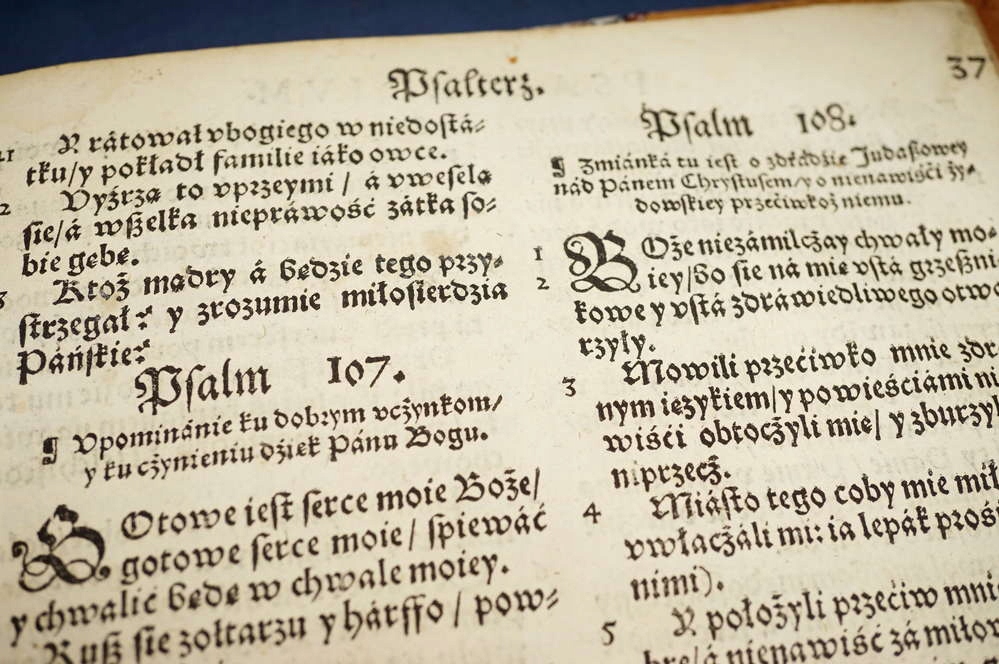 Psalterz.
37
41 Y rátował vbogiego w niedostá⸗
tku/y pokładł familie iáko owce.
2 Vyźrzą to vprzeymi / á vweselą
sie/á wßelka niepráwość zátka so⸗
bie gębę.
3 Ktoż mądry á będzie tego przy⸗
strzegał: y zrozumie miłosierdzia
Páńskie:
Psalm 107.
¶ Vpominánie ku dobrym vcżynkom/
y ku cżynieniu dżięk Pánu Bogu.
GOtowe iest serce moie Boże/
gotowe serce moie / spiewáć
y chwalić będę w chwale moiey.
Ruß sie żołtarzu y hárffo / pow⸗
Psalm 108.
¶ Zmiánká tu iest o zdrádzie Judaßowey
nád Pánem Chrystusem/y o nienawiści ży⸗
dowskiey przećiwko niemu.
1 BOże niezámilcżay chwały mo⸗
2 iey/bo sie ná mie vstá grzeßni⸗
kowe y vstá zdráwiedliwego otwo
rzyły.
3 Mowili przećiwko mnie zdr
nym ięzykiem/y powieściámi ni
wiśći obtocżyli mie/ y zburzyl
niprzecż.
4 Miásto tego coby mie mił
vwłacżáli mi: ia lepák prośi
nimi).
5 Y położyli przećiw mni
bre/á nienawiść zá miłow